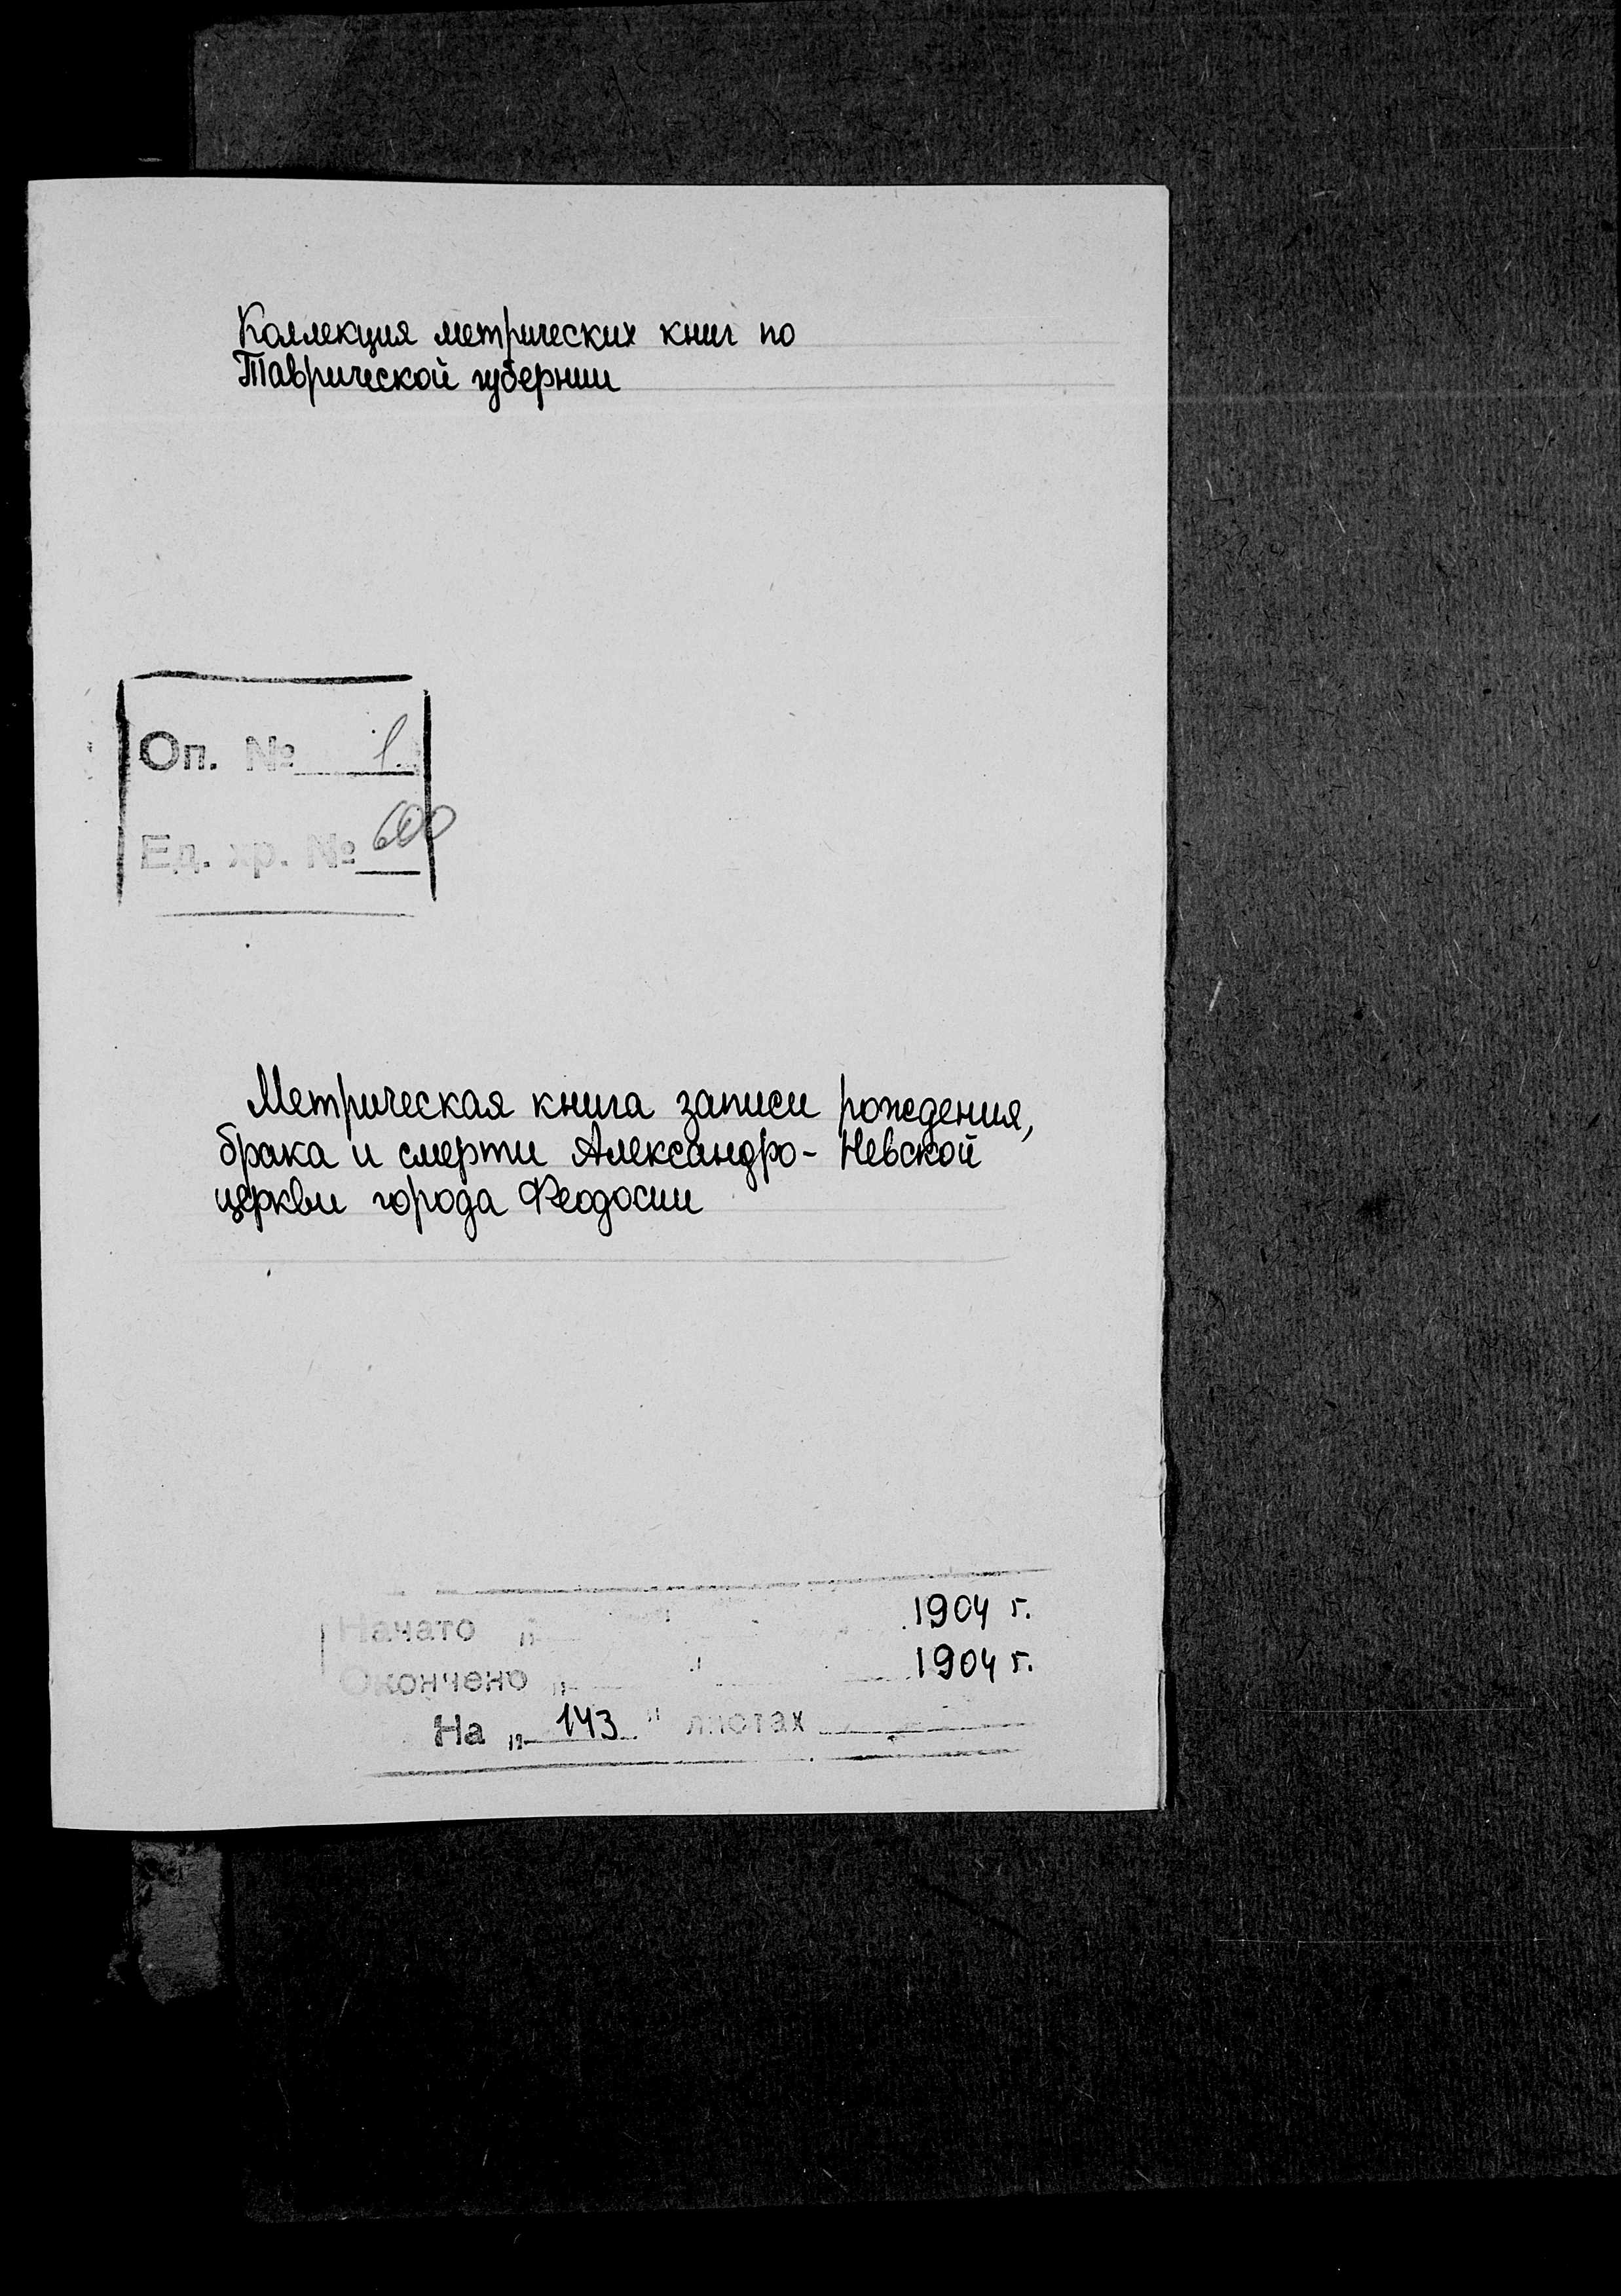 Коллекция метрических книг по
Таврической губернии
Оп. № 1
Ед. хр. № 600
Метрическая книга записи рождения,
брака и смерти Александро-Невской
церкви города Феодосии
Начато „ " 1904 г.
Окончено „ " 1904 г.
На „ 143 " листах